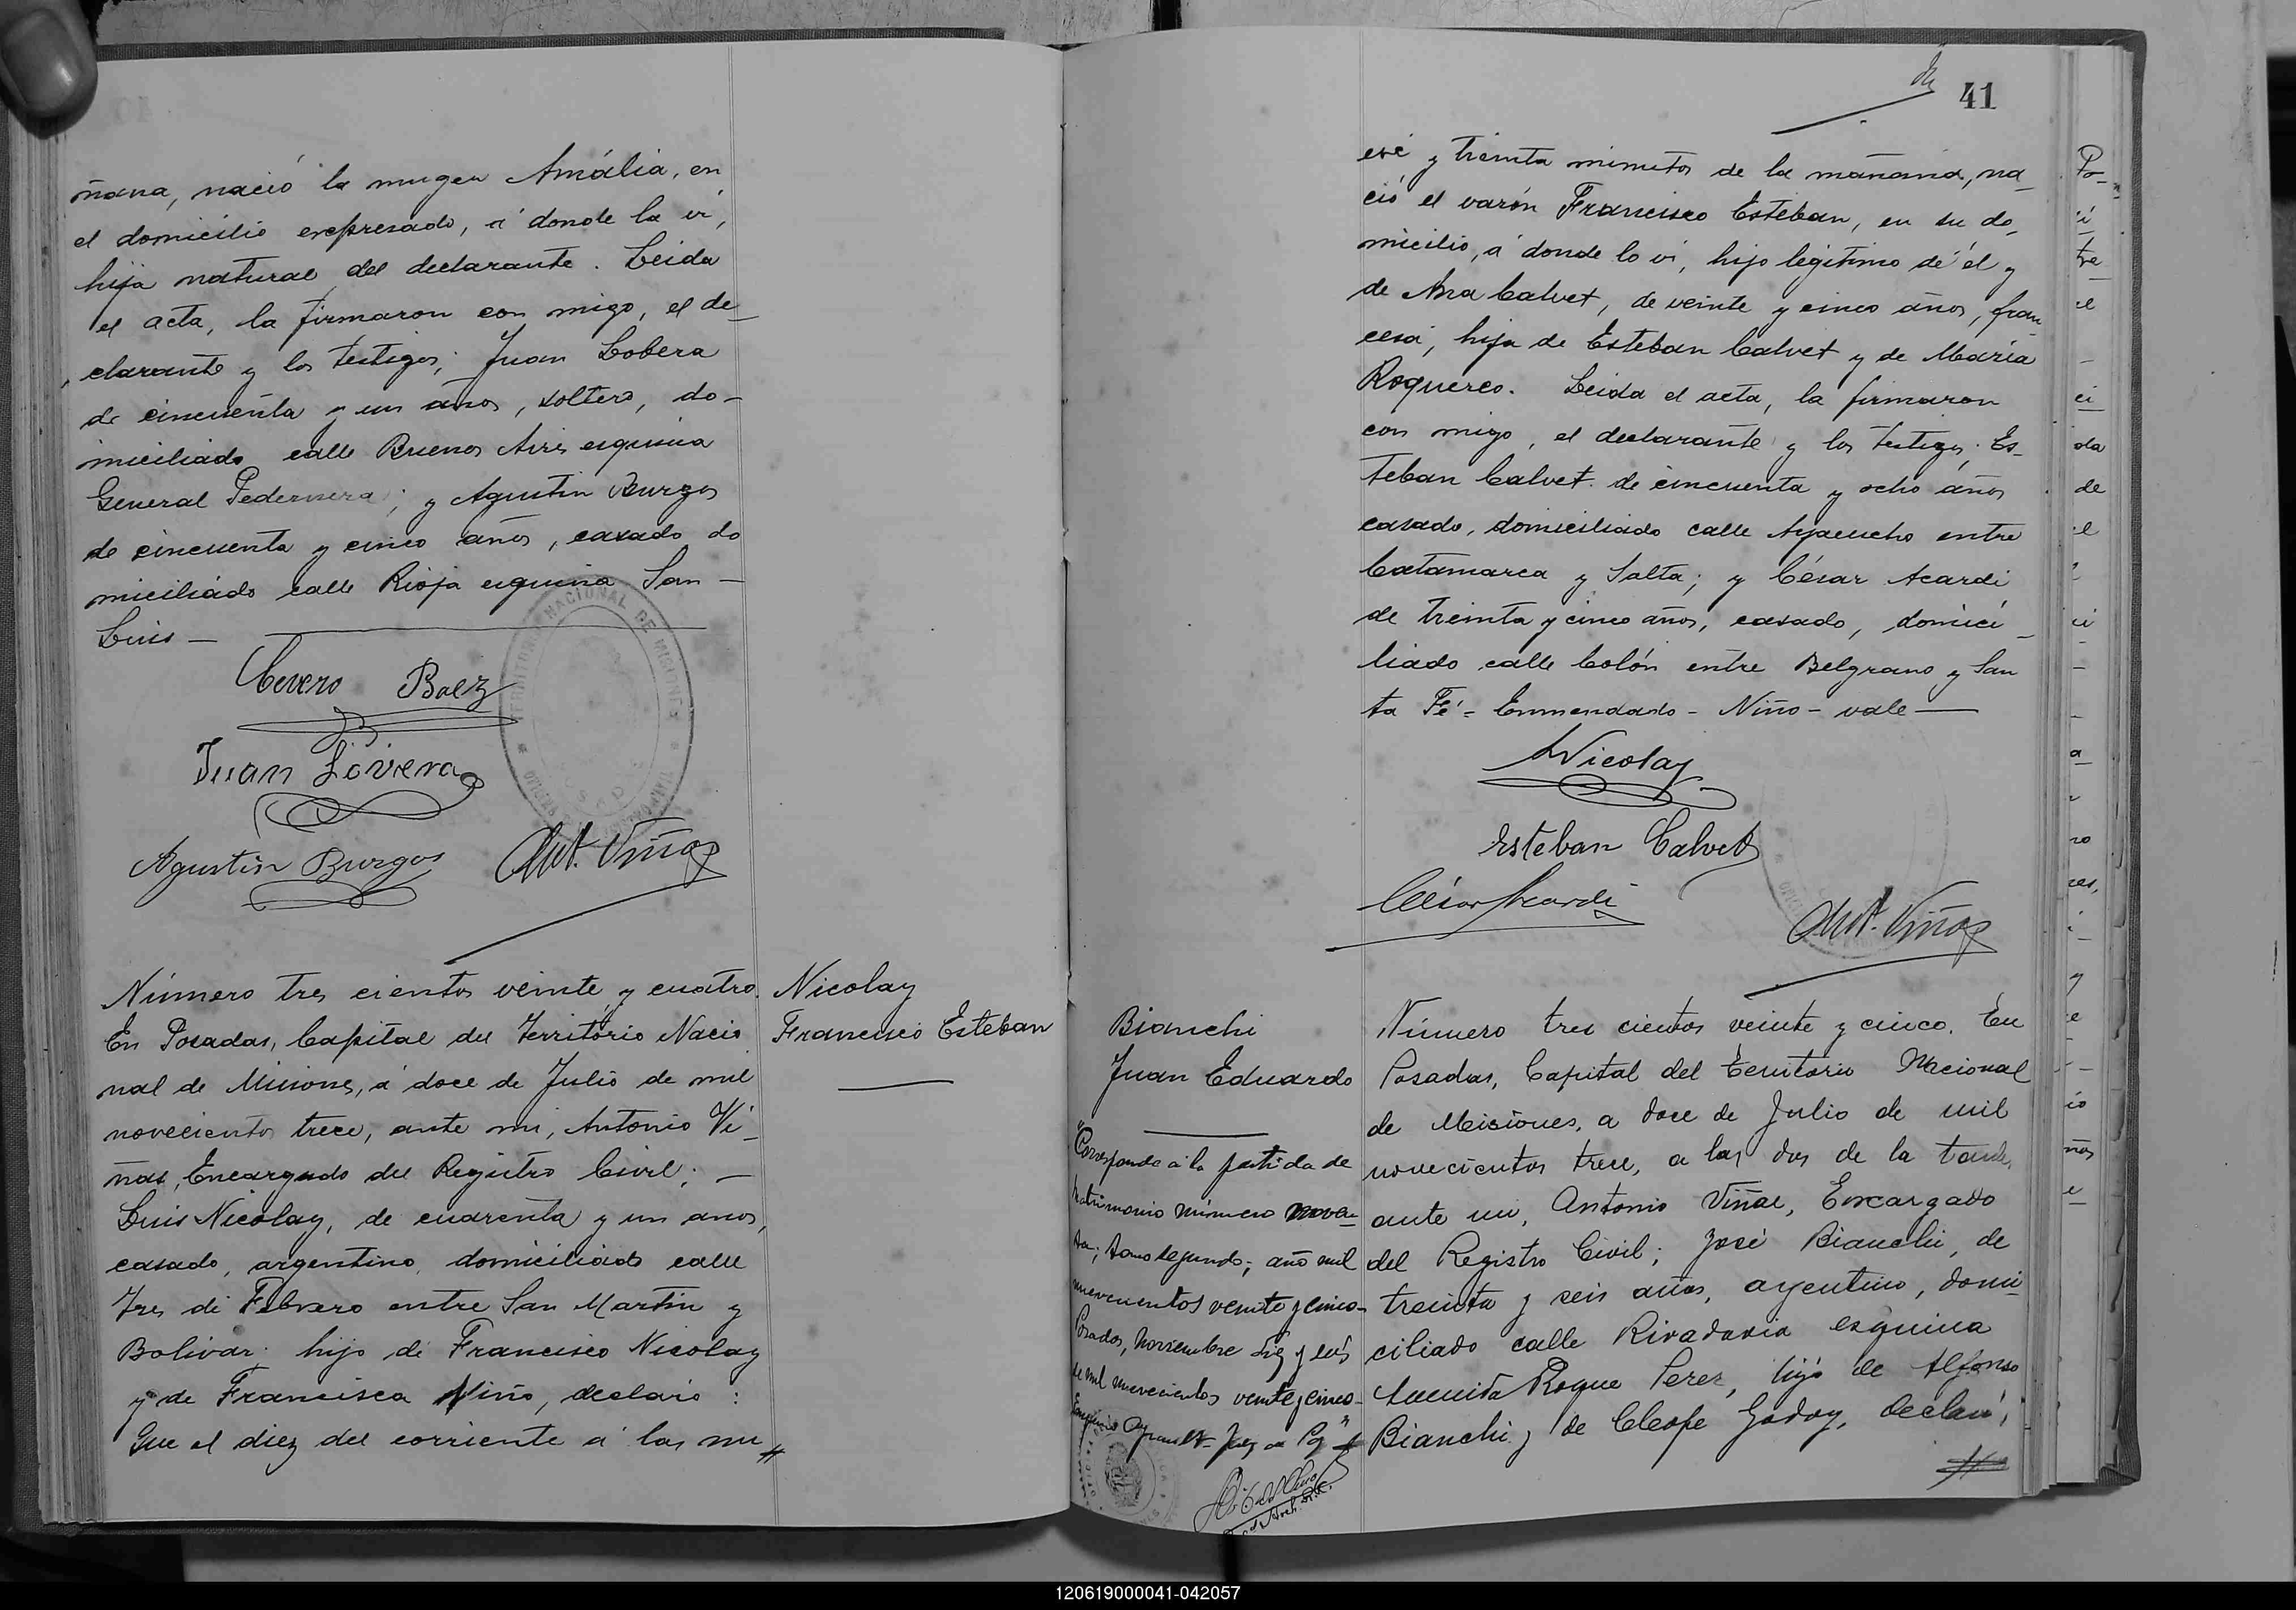 ñana, nació la muger Amália, en
el domicilio expresado, á donde la vi,
hija natural del declarante. Leida
el acta, la firmaron con migo, el de_
clarante y los testigos; Juan Lobera
de cincuenta y un años, soltero, do-
miciliado calle Buenos Aires esquina
General Pedernera; y Agustin Burgos
de cincuenta y cinco años, casado do
miciliado calle Rioja esquina San -
Luis -
Cevero Baez
Juan Lovera
Agustin Burgos
Ant. Viñas
TERRITORIO NACIONAL DE MISIONES
Número tres cientos veinte y cuatro.
En Posadas, Capital del Territorio Nacio
nal de Misiones, á doce de Julio de mil
novecientos trece, ante mi, Antonio Vi_
ñas, Encargado del Registro Civil; -
Luis Nicolay, de cuarenta y un anos,
casado, argentino, domiciliado calle
Tres de Febrero entre San Martin y
Bolivar; hijo de Francisco Nicolay
y de Francisca Niño, declaró:
Que el diez del corriente á las nu
Nicolay
Francisco Esteban
41
eve y treinta minutos de la mañana, na_
ció el varón Francisco Esteban, en su do_
micilio, á donde lo vi, hijo legitimo de él y
de Ana Calvet, de veinte y cinco años, fran_
cesa, hija de Esteban Calvet y de María
Leida el acta, la firmaron
con migo, el declarante y los testigos; Es_
teban Calvet. de cincuenta y ocho años
casado, domiciliado calle Ayacucho entre
Catamarca y Salta; y César Acardi
de treinta y cinco años, casado, domici_
liado calle Colón entre Belgrano y San
ta Fé = Enmendado - Niño - vale
Nicolay
Esteban Calvet
César Acardi
Ant. Viñas
Bianchi
Juan Eduardo
"Corresponde a la partida de
matrimonio número noven_
ta; tomo segundo; año mil
novecientos veinte y cinco-
Posadas, Noviembre diez y seis
de mil novecientos veinte y cinco-
Número tres cientos veinte y cinco. En
Posadas, Capital del Territorio Nacional
de Misiones, a doce de Julio de mil
novecientos trece, a las dos de la tarde,
ante mi, Antonio Viñas, Encargado
del Registro Civil; José Bianchi, de
treinta y seis años, argentino, domi
ciliado calle Rivadavia esquina
Avenida Roque Perez, hijo de Alfonso
Bianchi y de Cleofe Godoy, declaró;
120619000041-042057